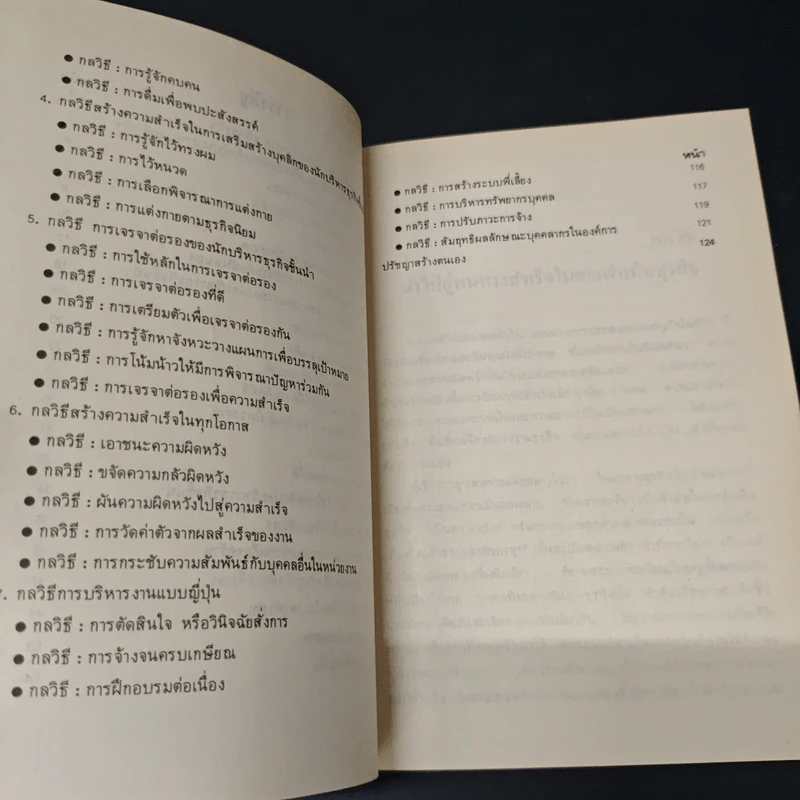 ● กลวิธี : การรู้จักคบคน
● กลวิธี : การดื่มเพื่อพบปะสังสรรค์
4. กลวิธีสร้างความสำเร็จในการเสริมสร้างบุคลิกของนักบริหารธุรกิจ
● กลวิธี : การรู้จักไว้ทรงผม
● กลวิธี : การไว้หนวด
● กลวิธี : การเลือกพิจารณาการแต่งกาย
● กลวิธี : การแต่งกายตามธุรกิจนิยม
5. กลวิธี การเจรจาต่อรองของนักบริหารธุรกิจชั้นนำ
● กลวิธี : การใช้หลักในการเจรจาต่อรอง
● กลวิธี : การเจรจาต่อรองที่ดี
● กลวิธี : การเตรียมตัวเพื่อเจรจาต่อรองกัน
● กลวิธี : การรู้จักหาจังหวะวางแผนการเพื่อบรรลุเป้าหมาย
● กลวิธี : การโน้มน้าวให้มีการพิจารณาปัญหาร่วมกัน
● กลวิธี : การเจรจาต่อรองเพื่อความสำเร็จ
6. กลวิธีสร้างความสำเร็จในทุกโอกาส
● กลวิธี : เอาชนะความผิดหวัง
● กลวิธี : ขจัดความกลัวผิดหวัง
● กลวิธี : ผันความผิดหวังไปสู่ความสำเร็จ
● กลวิธี : การวัดค่าตัวจากผลสำเร็จของงาน
● กลวิธี : การกระชับความสัมพันธ์กับบุคคลอื่นในหน่วยงาน
7. กลวิธีการบริหารงานแบบญี่ปุ่น
● กลวิธี : การตัดสินใจ หรือวินิจฉัยสั่งการ
● กลวิธี : การจ้างจนครบเกษียณ
● กลวิธี : การฝึกอบรมต่อเนื่อง
หน้า
● กลวิธี : การสร้างระบบพี่เลี้ยง 116
● กลวิธี : การบริหารทรัพยากรบุคคล 117
● กลวิธี : การปรับภาวะการจ้าง 119
● กลวิธี : สัมฤทธิผลลักษณะบุคคลากรในองค์การ 121
ปรัชญาสร้างตนเอง 124